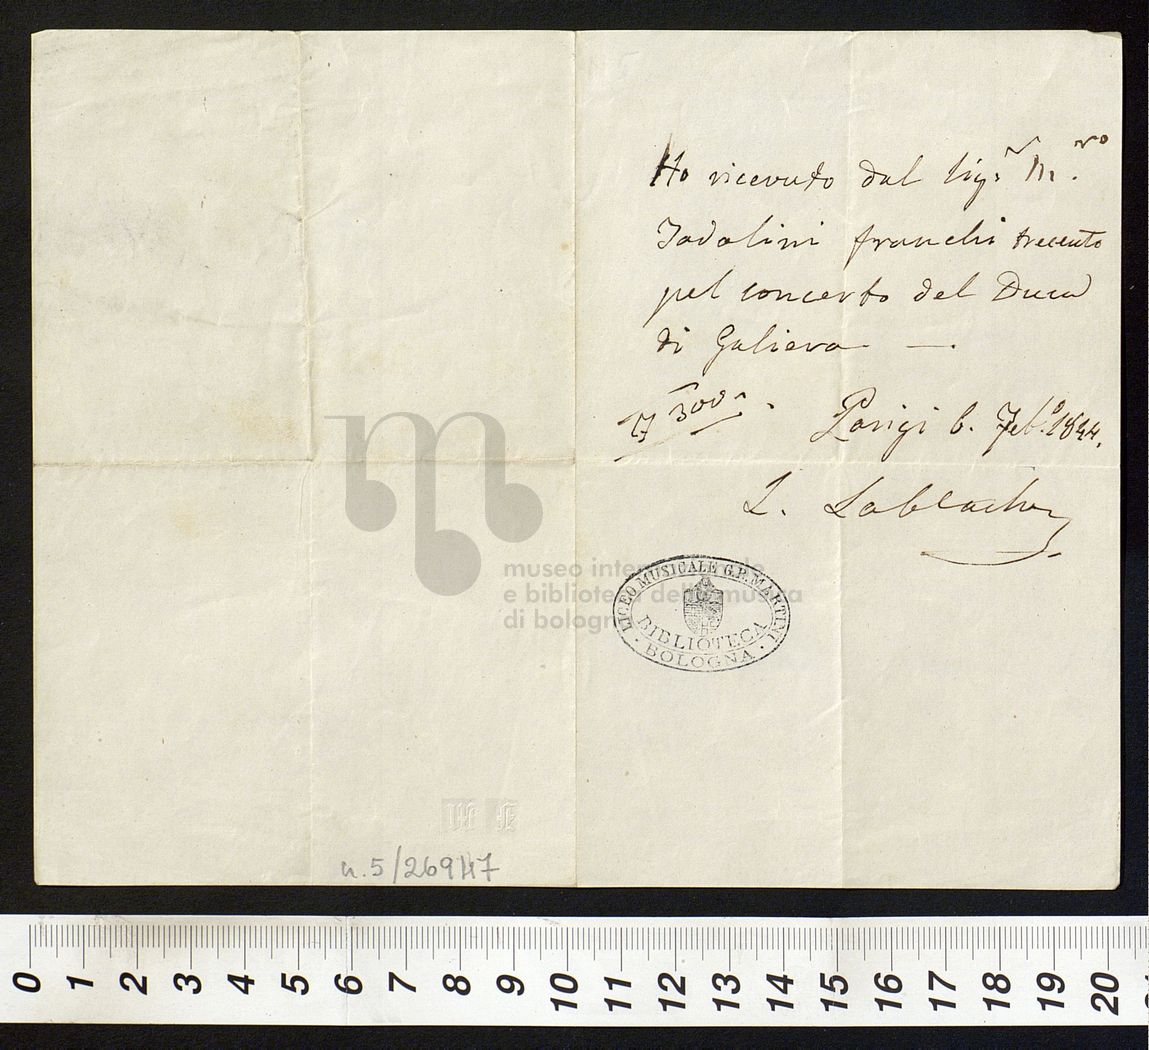 Ho ricevuto dal Sig.r M.ro
Tadolini franchi trecento
pel concerto del Duca
di Galiera —
300
Parigi 6. Feb.o 1844.
L. Lablache
museo internazionale
e biblioteca della musica
di bologna
LICEO MUSICALE G.B. MARTINI
BIBLIOTECA
· BOLOGNA ·
n.5/26947
0 1 2 3 4 5 6 7 8 9 10 11 12 13 14 15 16 17 18 19 20